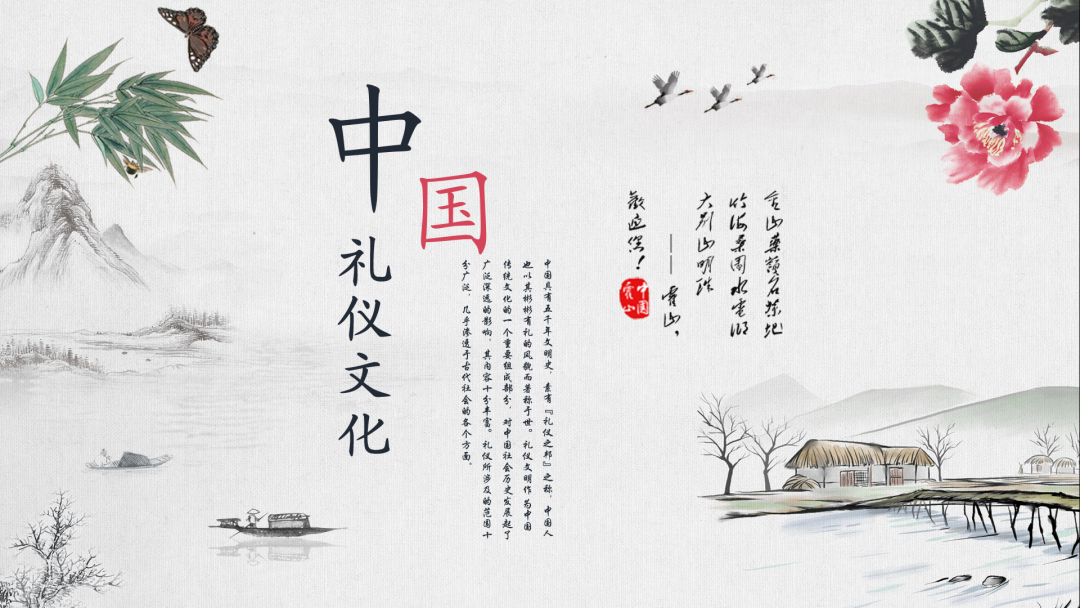 中
国
礼仪文化
中国具有五千年文明史，素有『礼仪之邦』之称，中国人
也以其彬彬有礼的风貌而著称于世。礼仪文明作为中国
传统文化的一个重要组成部分，对中国社会历史发展起了
广泛深远的影响，其内容十分丰富。礼仪所涉及的范围十
分广泛，几乎渗透于古代社会的各个方面。
金山藥嶺名茶地
竹海桑園水電湖
大别山明珠
——霍山，
歡迎您！
中國
霍山